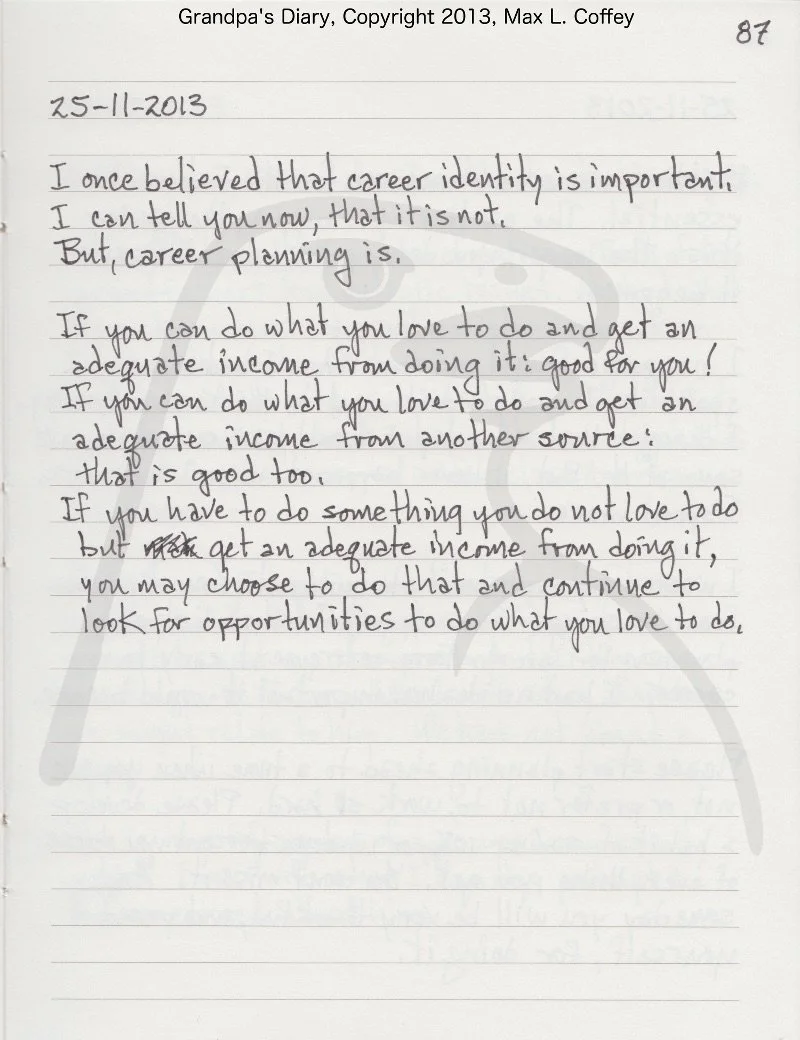 Grandpa's Diary, Copyright 2013, Max L. Coffey
87
25-11-2013
I once believed that career identity is important.
I can tell you now, that it is not.
But, career planning is.
If you can do what you love to do and get an
adequate income from doing it: good for you!
If you can do what you love to do and get an
adequate income from another source:
that is good too.
If you have to do something you do not love to do
but get an adequate income from doing it,
you may choose to do that and continue to
look for opportunities to do what you love to do.